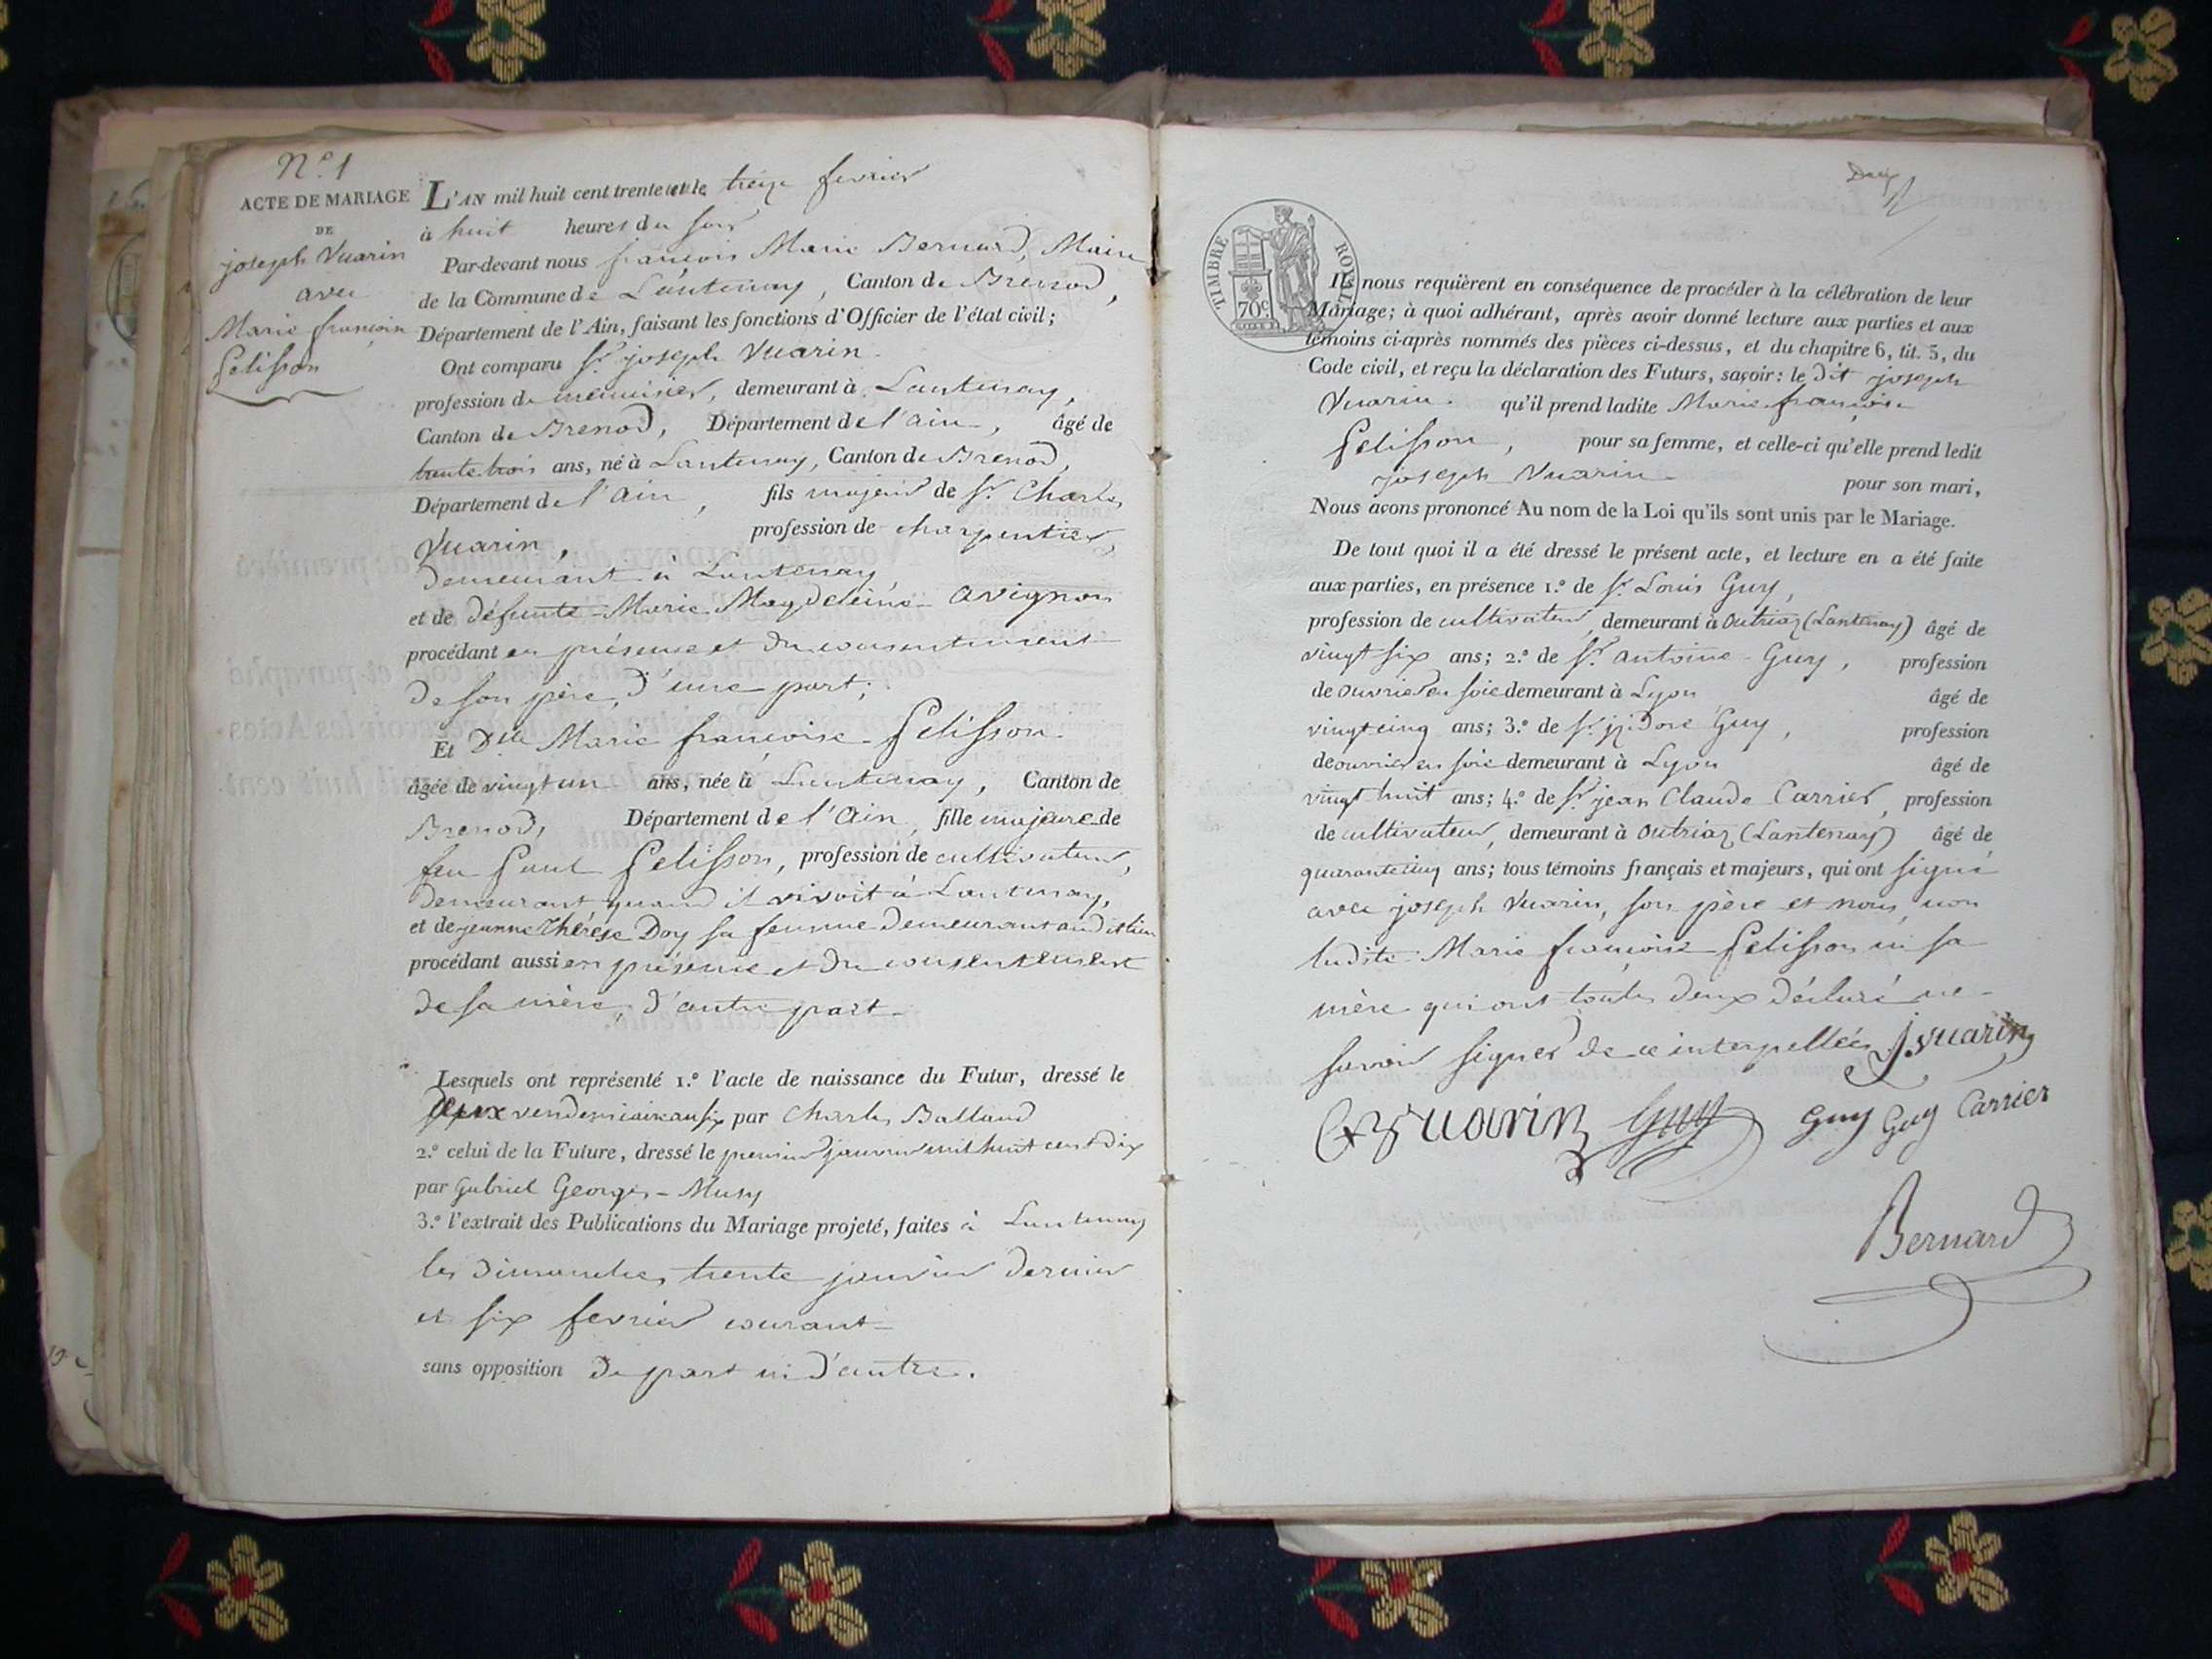 N.º 1
ACTE DE MARIAGE
DE
joseph Vuarin
avec
Marie françoise
Pelisson
L'AN mil huit cent trente et le treize fevrier
à huit heures du soir
Par-devant nous françois Marie Bernard, Maire
de la Commune de Lantenay, Canton de Brenod,
Département de l'Ain, faisant les fonctions d'Officier de l'état civil;
Ont comparu Sr. joseph Vuarin
profession de menuisier, demeurant à Lantenay,
Canton de Brenod, Département de l'ain, âgé de
trente trois ans, né à Lantenay, Canton de Brenod,
Département de l'ain, fils majeur de Sr. Charles
Vuarin, profession de charpentier,
demeurant à Lantenay,
et de défunte Marie Magdeleine avignon
procédant en présence et du consentement
de son père, d'une part;
Et Dlle Marie françoise Pelisson
âgée de vingt un ans, née à Lantenay, Canton de
Brenod, Département de l'Ain, fille majeure de
feu Paul Pelisson, profession de cultivateur,
demeurant quand il vivoit à Lantenay,
et de jeanne Thérèse Doy sa femme demeurant audit lieu
procédant aussi en présence et du consentement
de sa mère, d'autre part
Lesquels ont représenté 1.º l'acte de naissance du Futur, dressé le
deux vendemiaire an six par Charles Balland
2.º celui de la Future, dressé le premier janvier mil huit cent dix
par Gabriel Georges-Musy
3.º l'extrait des Publications du Mariage projeté, faites à Lantenay
les dimanches trente janvier dernier
et six fevrier courant
sans opposition de part ni d'autre.
TIMBRE ROYAL
70c.
Ils nous requièrent en conséquence de procéder à la célébration de leur
Mariage; à quoi adhérant, après avoir donné lecture aux parties et aux
témoins ci-après nommés des pièces ci-dessus, et du chapitre 6, tit. 5, du
Code civil, et reçu la déclaration des Futurs, savoir: le dit joseph
Vuarin qu'il prend ladite Marie françoise
Pelisson, pour sa femme, et celle-ci qu'elle prend ledit
joseph Vuarin pour son mari,
Nous avons prononcé Au nom de la Loi qu'ils sont unis par le Mariage.
De tout quoi il a été dressé le présent acte, et lecture en a été faite
aux parties, en présence 1.º de Sr. Louis Guy,
profession de cultivateur, demeurant à Outriaz (Lantenay) âgé de
vingt six ans; 2.º de Sr. antoine Guy, profession
de ouvrier en soie demeurant à Lyon âgé de
vingt cinq ans; 3.º de Sr. izidore Guy, profession
de ouvrier en soie demeurant à Lyon âgé de
vingt huit ans; 4.º de Sr. jean Claude Carrier, profession
de cultivateur, demeurant à Outriaz (Lantenay) âgé de
quarante cinq ans; tous témoins français et majeurs, qui ont signé
avec joseph Vuarin, son père et nous, non
ladite Marie françoise Pelisson ni sa
mère qui ont toutes deux déclaré ne
savoir signer de ce interpellées. J. vuarin
Ch vuarin Guy Guy Guy Carrier
Bernard